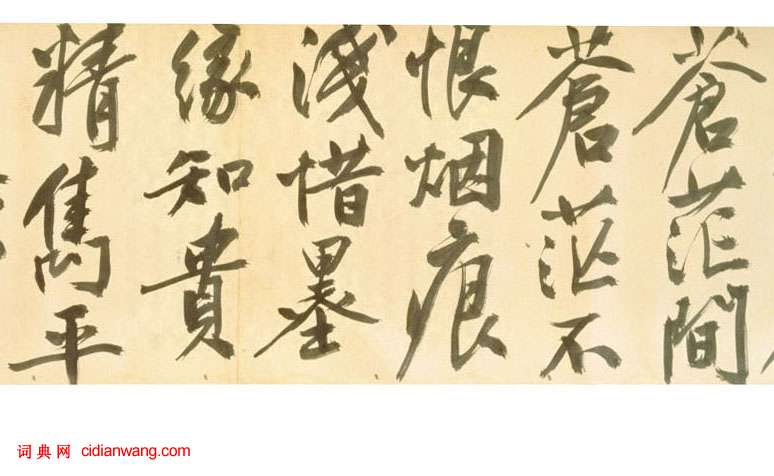 蒼茫間
蒼茫不
恨烟痕
淺惜墨
緣知貴
精雋平
词典网 cidianwang.com